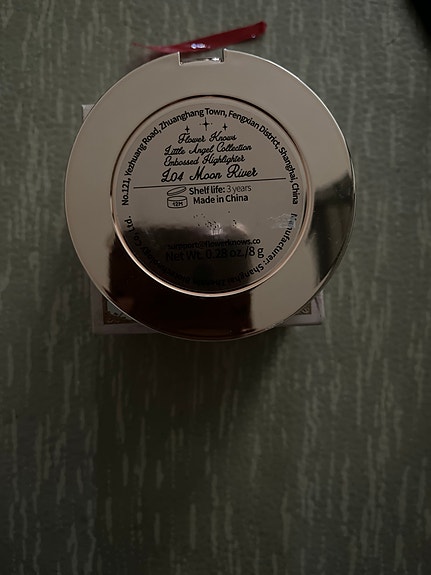 No.121, Yezhuang Road, Zhuanghang Town, Fengxian District, Shanghai, China
Flower Knows
Little Angel Collection
Embossed Highlighter
L04 Moon River
12M
Shelf life: 3 years
Made in China
support@flowerknows.co
Net Wt. 0.28 oz./8 g
Manufacturer: Shanghai
Co., Ltd.